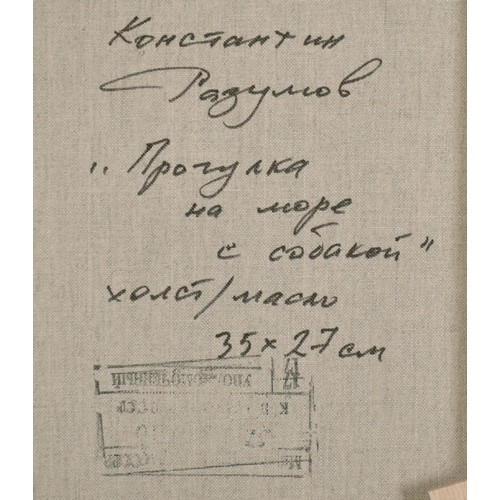 Константин
Разумов
„Прогулка
на море
с собакой"
холст/масло
35 х 27 см